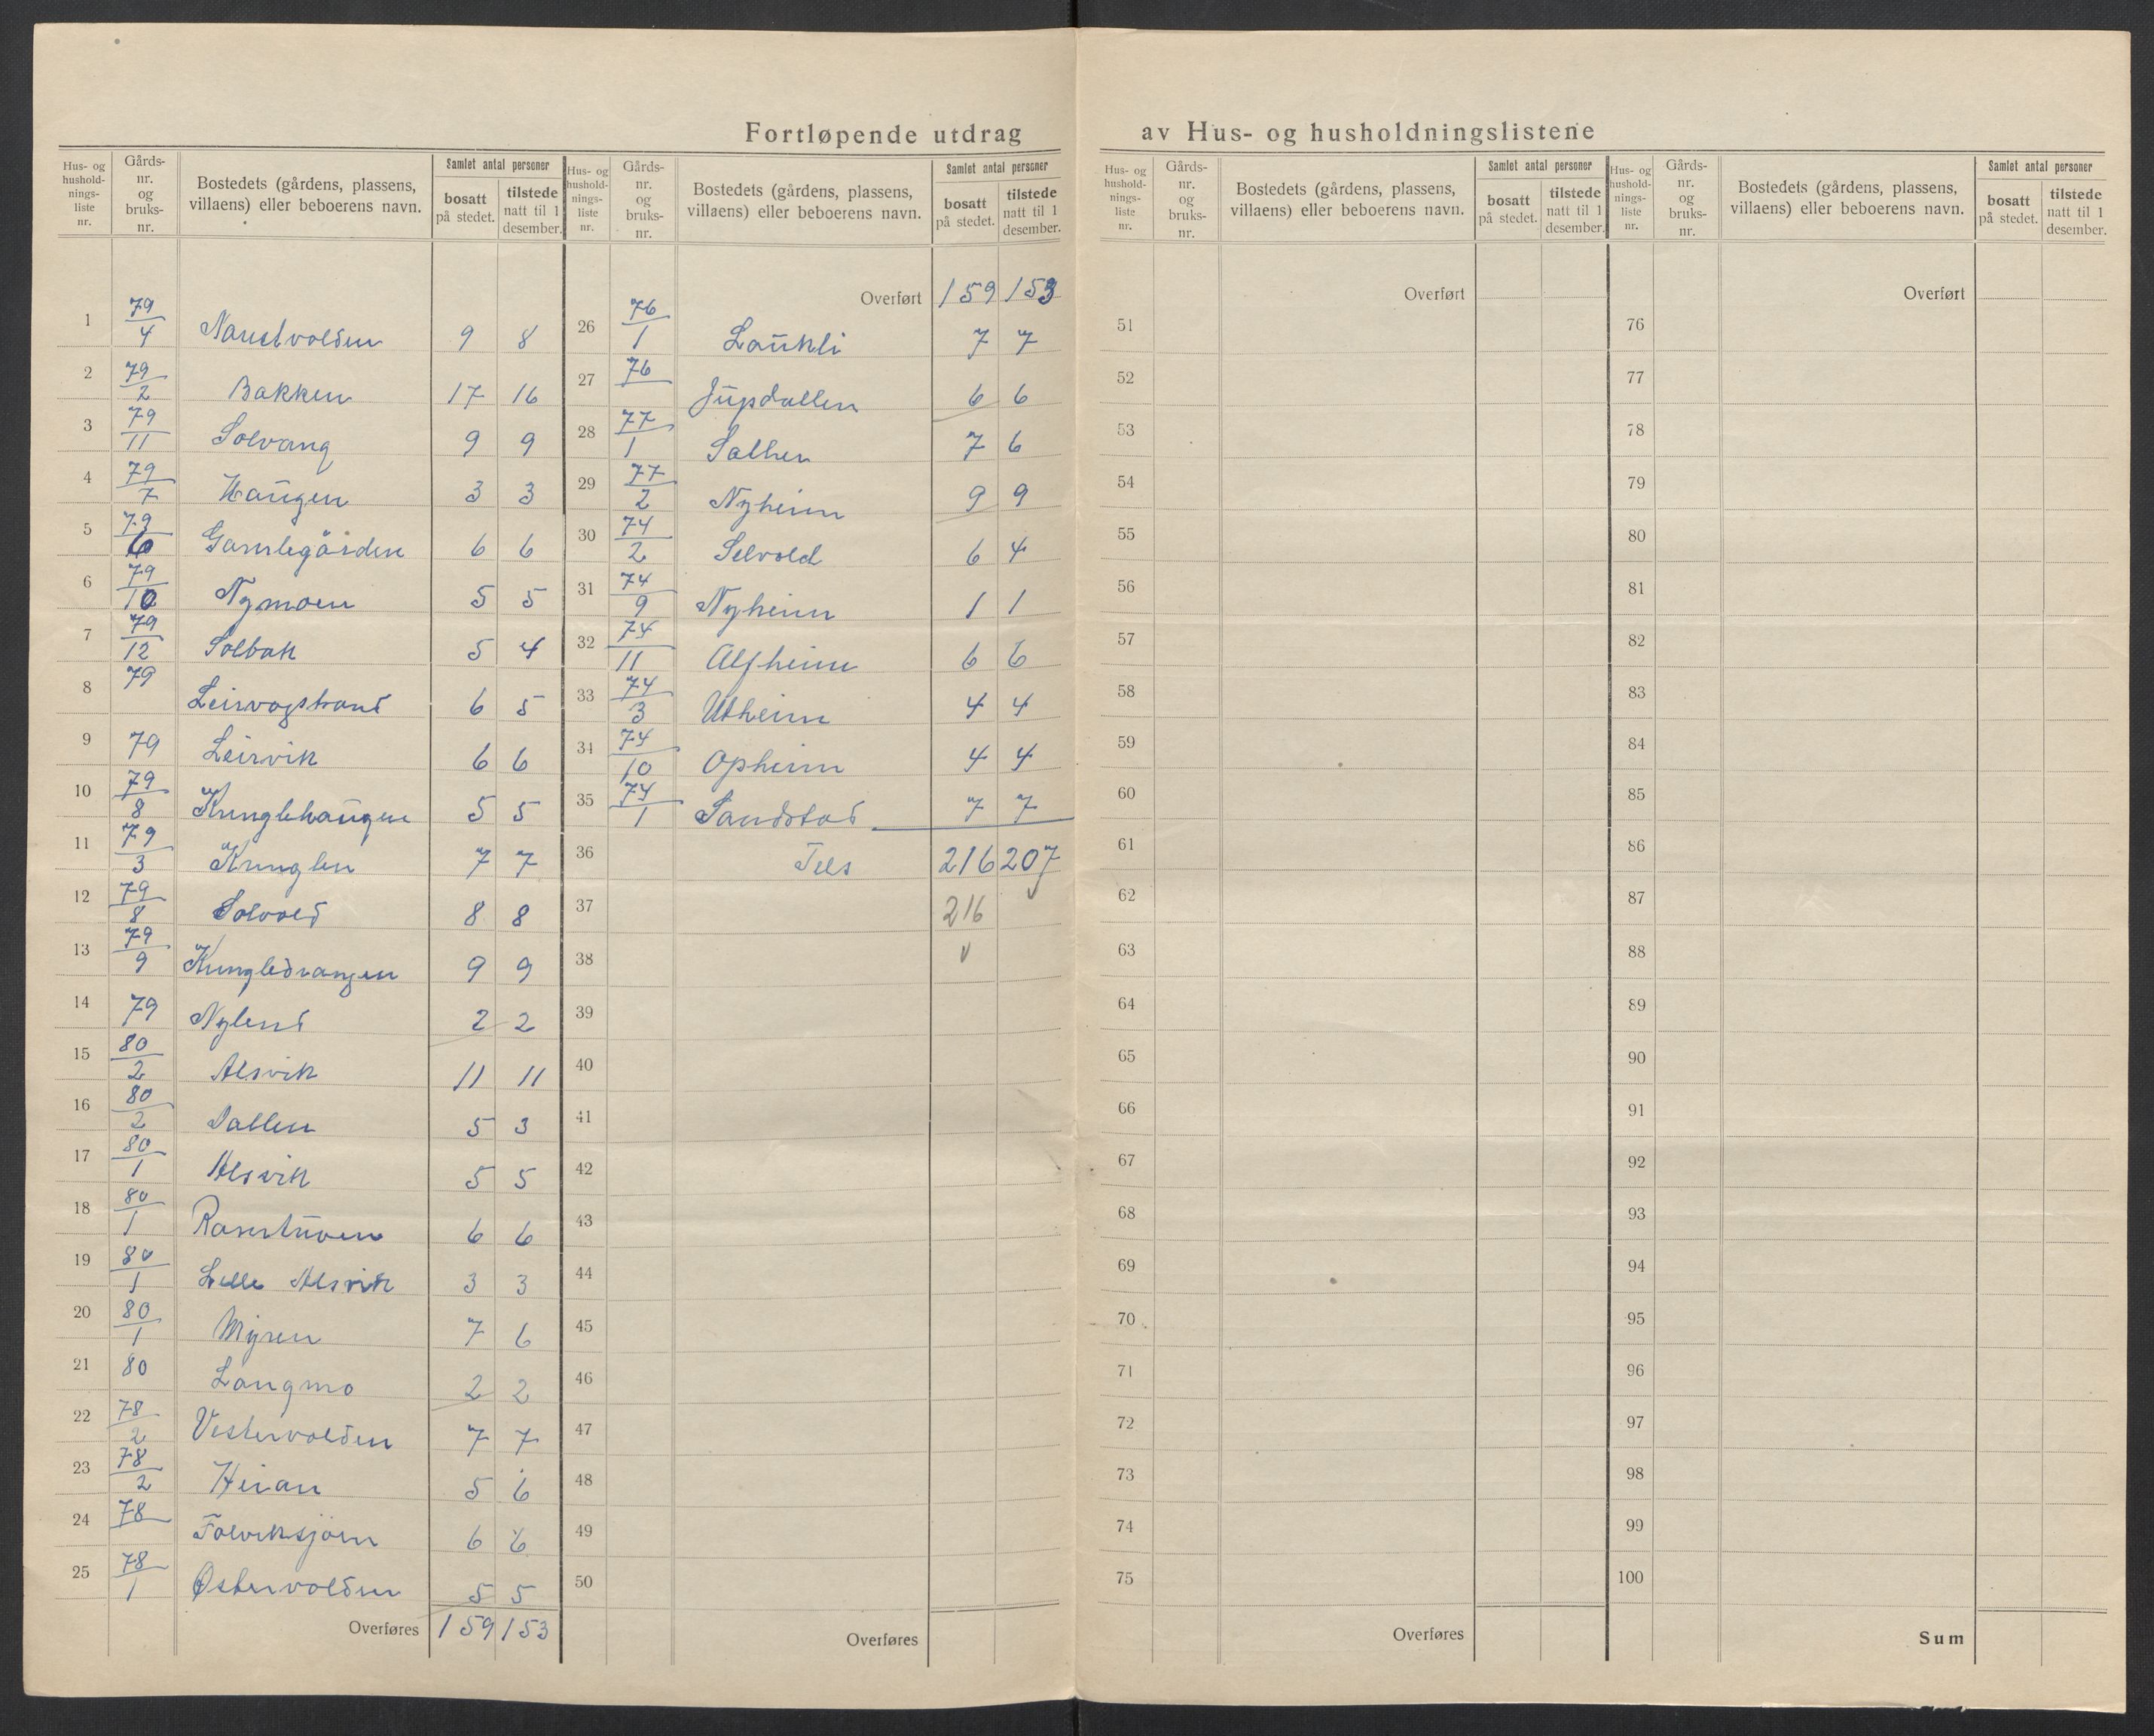 Fortløpende utdrag av Hus- og husholdningslistene
Hus- og husholdningsliste nr. | Gårds-nr. og bruks-nr. | Bostedets (gårdens, plassens, villaens) eller beboerens navn. | Samlet antal personer | bosatt på stedet. | tilstede natt til 1 desember.
1 79/4 Naustvolden 9 8
2 79/2 Bakken 17 16
3 79/11 Solvang 9 9
4 79/7 Haugen 3 3
5 79/6 Gamlegården 6 6
6 79/10 Nymoen 5 5
7 79/12 Solbak 5 4
8 79 Leirvogstrand 6 5
9 79 Leirvik 6 6
10 79/8 Kringlehaugen 5 5
11 79/3 Kringlen 7 7
12 79/8 Solvold 8 8
13 79/9 Kringledrangen 9 9
14 79 Nylend 2 2
15 80/2 Alsvik 11 11
16 80/2 Dallen 5 3
17 80/1 Alsvik 5 5
18 80/1 Ramstuven 6 6
19 80/1 Lille Alsvik 3 3
20 80/1 Myren 7 6
21 80 Langmo 2 2
22 78/2 Vestervolden 7 7
23 78/2 Heian 5 6
24 78 Falviksjøen 6 6
25 78/1 Østervolden 5 5
Overføres 159 153
Hus- og husholdningsliste nr. | Gårds-nr. og bruks-nr. | Bostedets (gårdens, plassens, villaens) eller beboerens navn. | Samlet antal personer | bosatt på stedet. | tilstede natt til 1 desember.
Overført 159 153
26 76/1 Laukli 7 7
27 76 Jupdallen 6 6
28 77/1 Salhen 7 6
29 77/2 Nyheim 9 9
30 74/2 Selvold 6 4
31 74/9 Nyheim 1 1
32 74/11 Alfheim 6 6
33 74/3 Utheim 4 4
34 74/10 Opheim 4 4
35 74/1 Sandstad 7 7
36 Tils 216 207
37 216
38
39
40
41
42
43
44
45
46
47
48
49
50
Overføres
Hus- og husholdningsliste nr. | Gårds-nr. og bruks-nr. | Bostedets (gårdens, plassens, villaens) eller beboerens navn. | Samlet antal personer | bosatt på stedet. | tilstede natt til 1 desember.
Overført
51
52
53
54
55
56
57
58
59
60
61
62
63
64
65
66
67
68
69
70
71
72
73
74
75
Overføres
Hus- og husholdningsliste nr. | Gårds-nr. og bruks-nr. | Bostedets (gårdens, plassens, villaens) eller beboerens navn. | Samlet antal personer | bosatt på stedet. | tilstede natt til 1 desember.
Overført
76
77
78
79
80
81
82
83
84
85
86
87
88
89
90
91
92
93
94
95
96
97
98
99
100
Sum